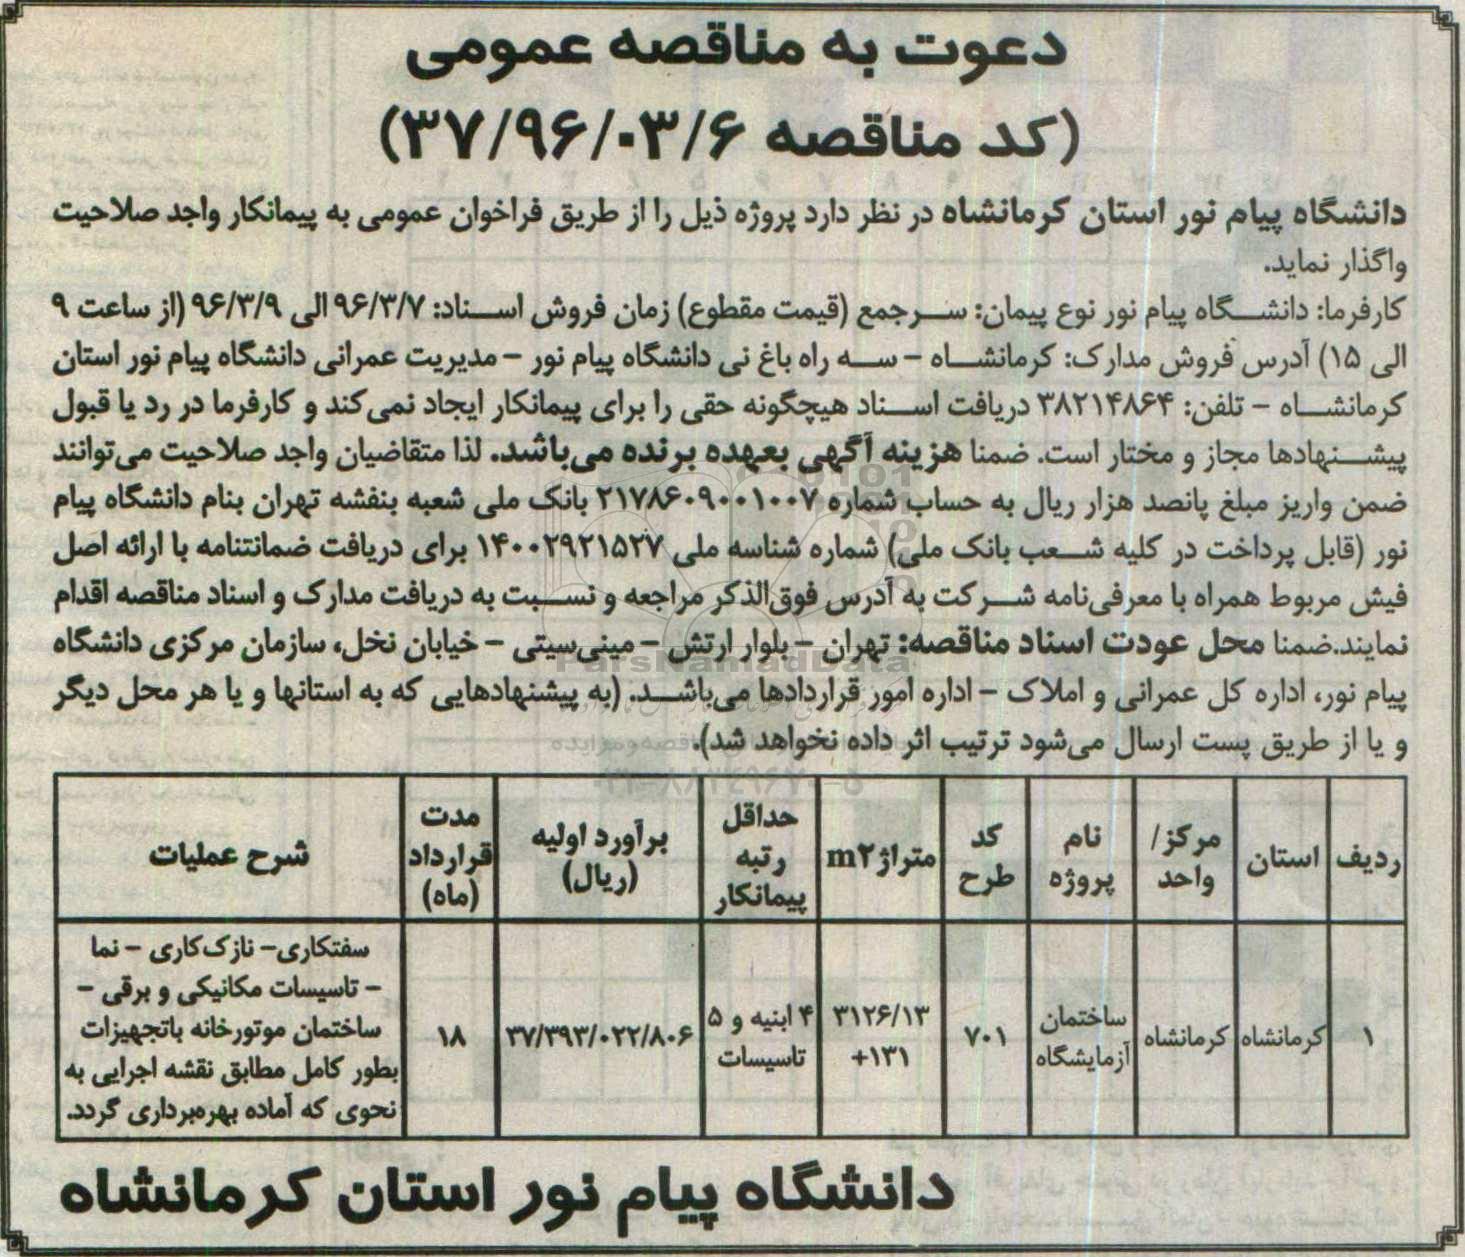 دعوت به مناقصه عمومی
(کد مناقصه ۳۷/۹۶/۰۳/۶)
دانشگاه پیام نور استان کرمانشاه در نظر دارد پروژه ذیل را از طریق فراخوان عمومی به پیمانکار واجد صلاحیت
واگذار نماید.
کارفرما: دانشگاه پیام نور نوع پیمان: سرجمع (قیمت مقطوع) زمان فروش اسناد: ۹۶/۳/۷ الی ۹۶/۳/۹ (از ساعت ۹
الی ۱۵) آدرس فروش مدارک: کرمانشاه – سه راه باغ نی دانشگاه پیام نور – مدیریت عمرانی دانشگاه پیام نور استان
کرمانشاه – تلفن: ۳۸۲۱۴۸۶۴ دریافت اسناد هیچگونه حقی را برای پیمانکار ایجاد نمی‌کند و کارفرما در رد یا قبول
پیشنهادها مجاز و مختار است. ضمنا هزینه آگهی بعهده برنده می‌باشد. لذا متقاضیان واجد صلاحیت می‌توانند
ضمن واریز مبلغ پانصد هزار ریال به حساب شماره ۲۱۷۸۶۰۹۰۰۱۰۰۷ بانک ملی شعبه بنفشه تهران بنام دانشگاه پیام
نور (قابل پرداخت در کلیه شعب بانک ملی) شماره شناسه ملی ۱۴۰۰۲۹۲۱۵۲۷ برای دریافت ضمانتنامه با ارائه اصل
فیش مربوط همراه با معرفی‌نامه شرکت به آدرس فوق‌الذکر مراجعه و نسبت به دریافت مدارک و اسناد مناقصه اقدام
نمایند.ضمنا محل عودت اسناد مناقصه: تهران – بلوار ارتش – مینی‌سیتی – خیابان نخل، سازمان مرکزی دانشگاه
پیام نور، اداره کل عمرانی و املاک – اداره امور قراردادها می‌باشد. (به پیشنهادهایی که به استانها و یا هر محل دیگر
و یا از طریق پست ارسال می‌شود ترتیب اثر داده نخواهد شد).
ParsNamadData
ردیف استان مرکز/ واحد نام پروژه کد طرح متراژ m۲ حداقل رتبه پیمانکار برآورد اولیه (ریال) مدت قرارداد (ماه) شرح عملیات
۱ کرمانشاه کرمانشاه ساختمان آزمایشگاه ۷۰۱ ۳۱۲۶/۱۳ +۱۳۱ ۴ ابنیه و ۵ تاسیسات ۳۷/۳۹۳/۰۲۲/۸۰۶ ۱۸
سفتکاری– نازک‌کاری – نما
– تاسیسات مکانیکی و برقی –
ساختمان موتورخانه باتجهیزات
بطور کامل مطابق نقشه اجرایی به
نحوی که آماده بهره‌برداری گردد.
دانشگاه پیام نور استان کرمانشاه